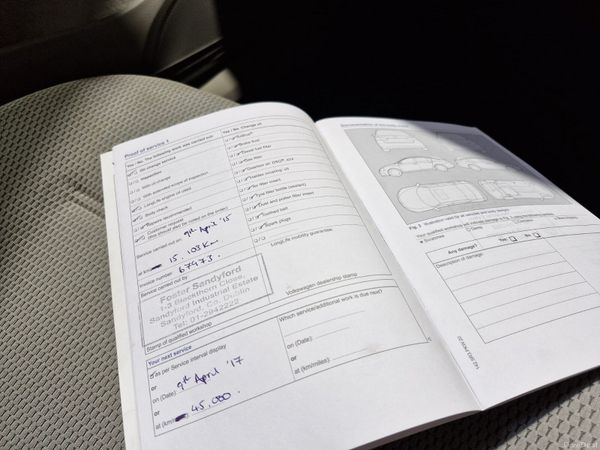 Proof of service 1
Yes / No The following work was carried out:
Oil change service
Inspection
With oil change
With extended scope of inspection
LongLife engine oil used
Body check
Yes / No Change of:
Brake fluid
Diesel fuel filter
Spark plugs
LongLife mobility guarantee
Service carried out on: 9th April '15
at km 15,103 Km
Invoice number 67973.
Service carried out by
Foster Sandyford
1-3 Blackthorn Close,
Sandyford Industrial Estate
Sandyford, Co. Dublin
Tel: 01-2942222
Stamp of qualified workshop
Volkswagen dealership stamp
Your next service
as per Service interval display
or
on (Date): 9th April '17
or
at (km/ 45,000.
Which service/additional work is due next?
on (Date):
or
at (km/miles):
Any damage? Yes No
Description of damage: